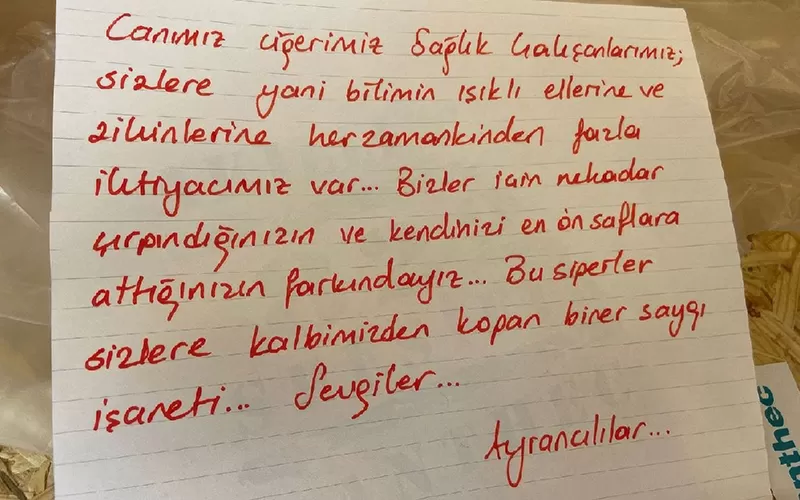 Canımız ciğerimiz Sağlık Çalışanlarımız;
sizlere yani bilimin ışıklı ellerine ve
zihinlerine her zamankinden fazla
ihtiyacımız var... Bizler için nekadar
çırpındığınızın ve kendinizi en ön saflara
attığınızın farkındayız... Bu siperler
sizlere kalbimizden kopan birer saygı
işareti... Sevgiler...
Ayrancılılar...
nthec